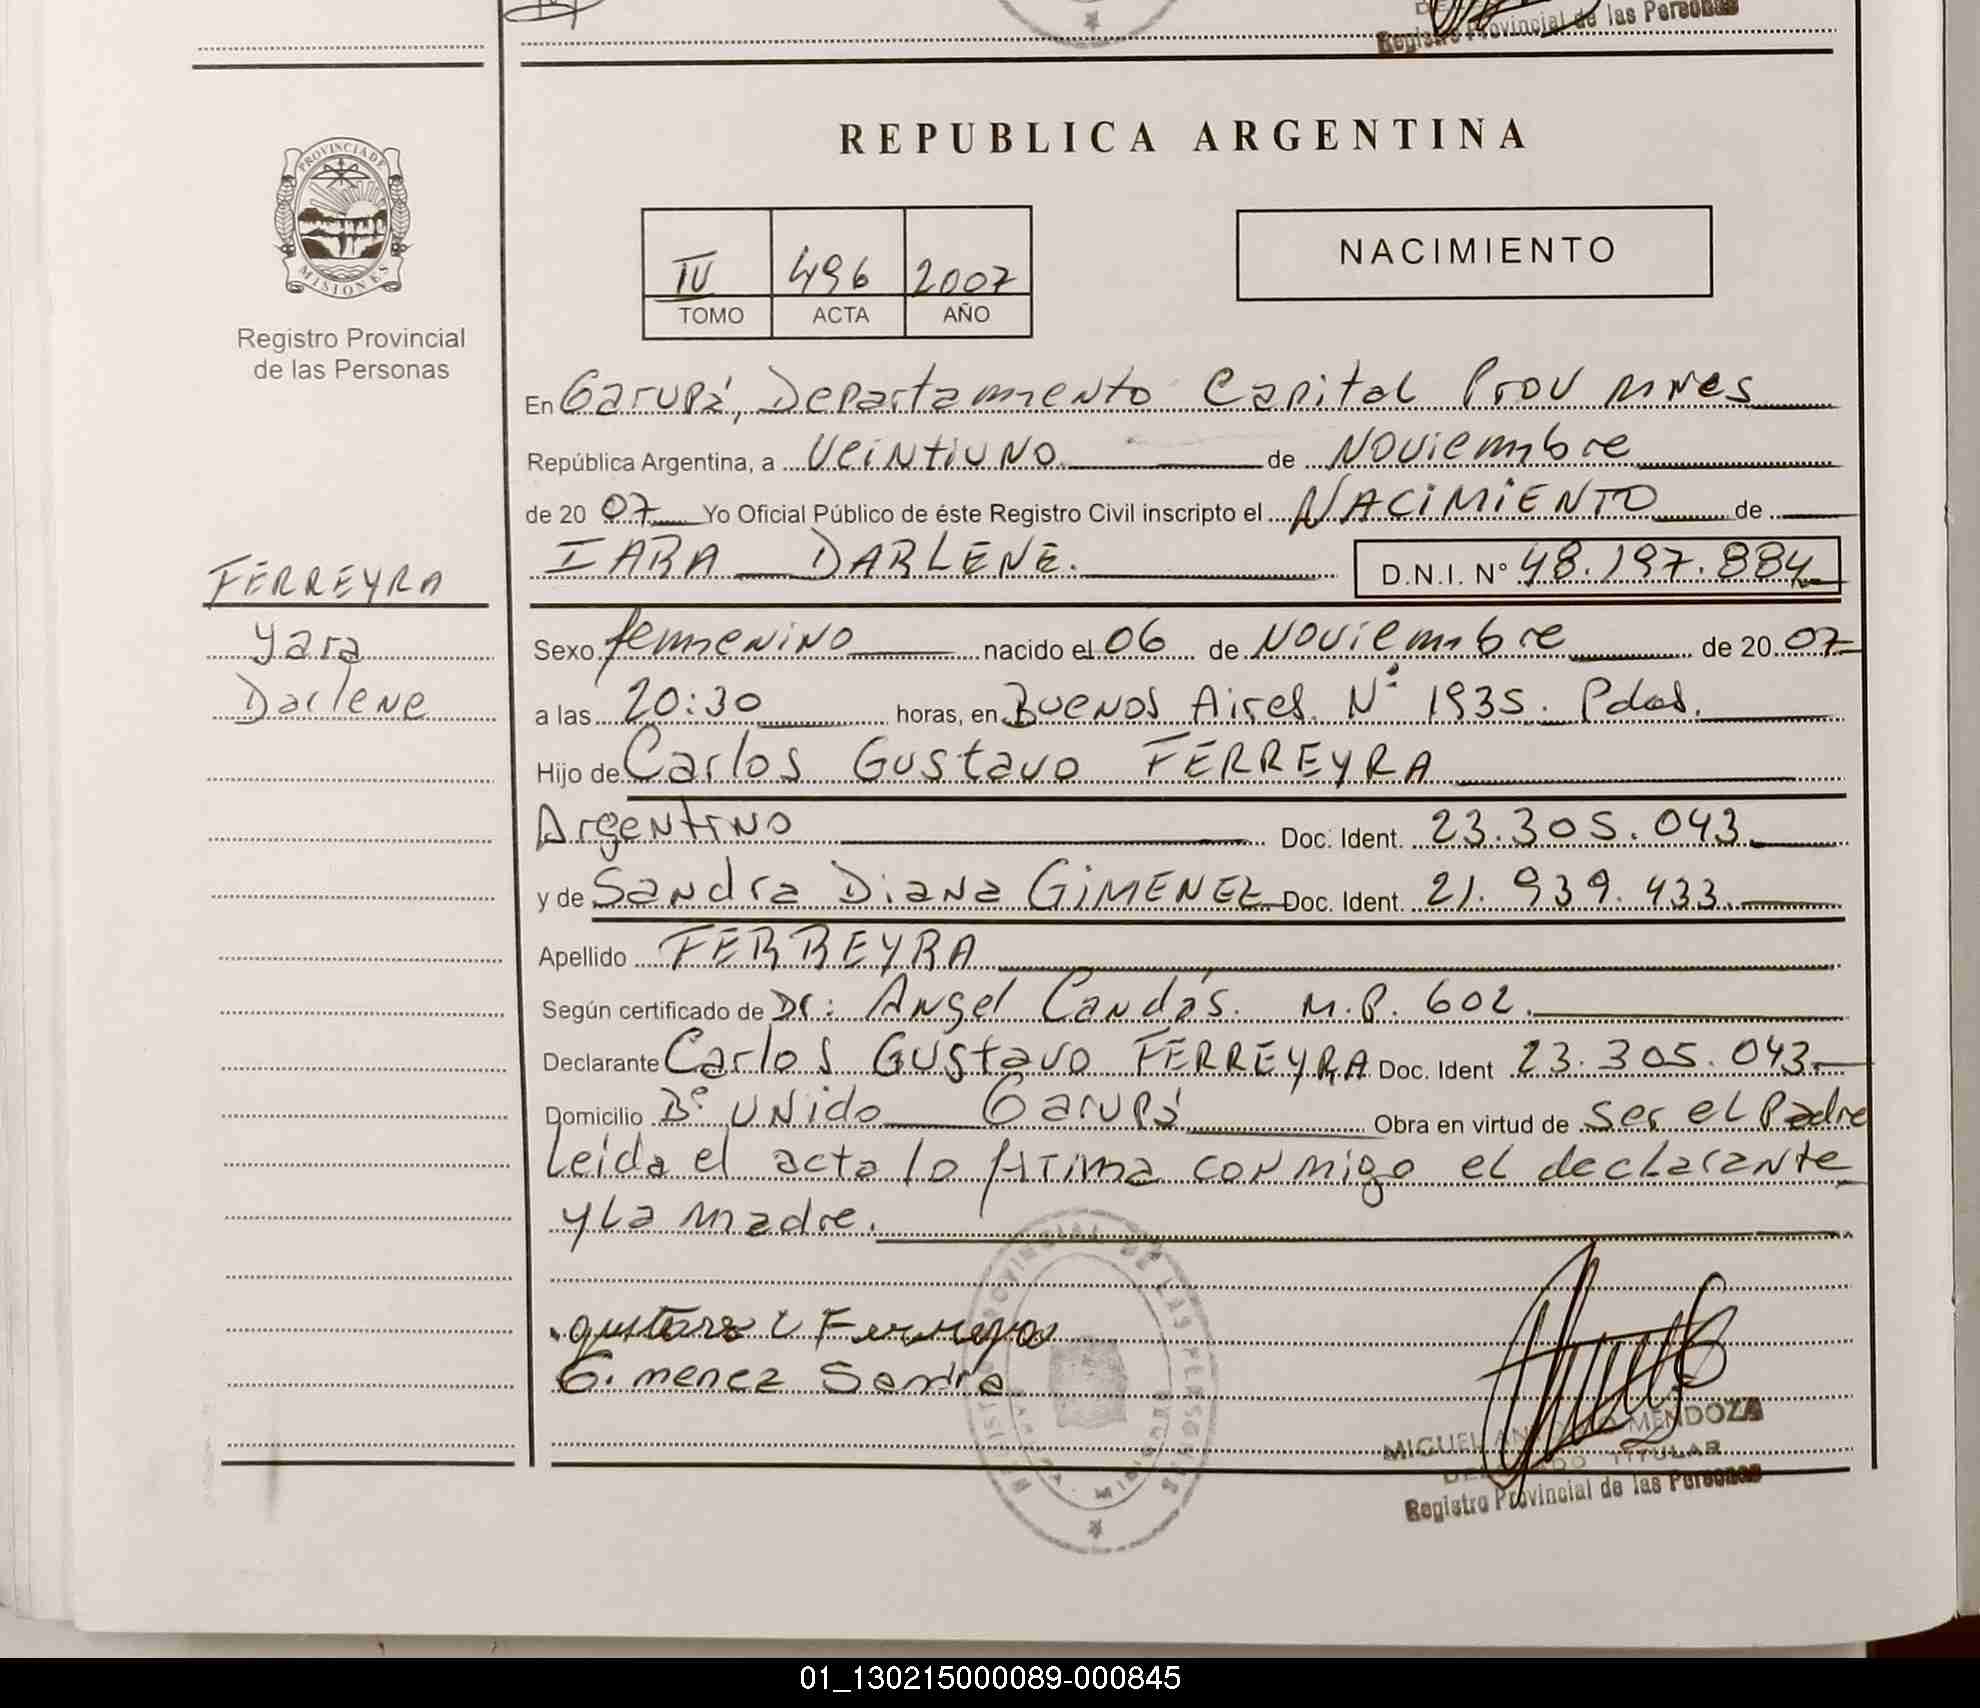 Registro Provincial de las Personas
PROVINCIA DE
MISIONES
Registro Provincial
de las Personas
REPUBLICA ARGENTINA
IV 496 2007
TOMO ACTA AÑO
NACIMIENTO
En Garupá, Departamento Capital Prov Mnes
República Argentina, a Veintiuno de Noviembre
de 20 07 Yo Oficial Público de éste Registro Civil inscripto el NACIMIENTO de
IARA DARLENE. D.N.I. N° 48.197.884
FERREYRA
Yara
Darlene
Sexo femenino nacido el 06 de Noviembre de 20 07
a las 20:30 horas, en Buenos Aires N° 1935. Pdas.
Hijo de Carlos Gustavo FERREYRA
Argentino Doc. Ident. 23.305.043
y de Sandra Diana GIMENEZ Doc. Ident. 21.939.433
Apellido FERREYRA
Según certificado de Dr: Angel Candás. M.P. 602.
Declarante Carlos Gustavo FERREYRA Doc. Ident 23.305.043
Domicilio B° Unido Garupá Obra en virtud de ser el Padre
Leida el acta lo firma conmigo el declarante
y la madre.
gustavo C Ferreyra
Gimenez Sandra
REGISTRO PROVINCIAL DE LAS PERSONAS
MIGUEL MENDOZA
DELEGADO TITULAR
Registro Provincial de las Personas
01_130215000089-000845